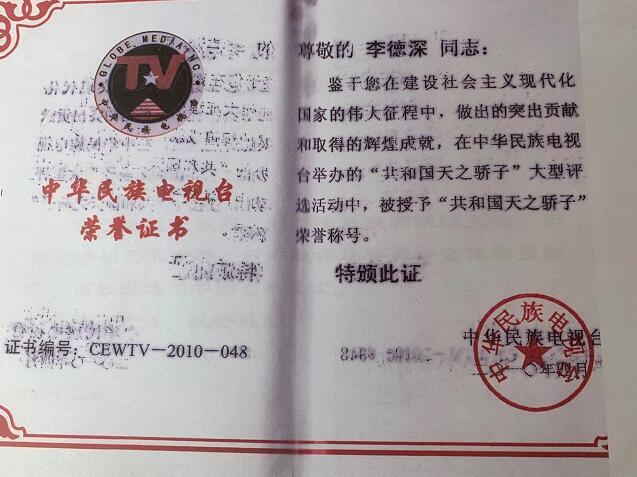 GLOBE MEDIA INC
TV
中华民族电视台
中华民族电视台
荣誉证书
证书编号：CEWTV－2010－048
尊敬的 李德深 同志：
鉴于您在建设社会主义现代化
国家的伟大征程中，做出的突出贡献
和取得的辉煌成就，在中华民族电视
台举办的“共和国天之骄子”大型评
选活动中，被授予“共和国天之骄子”
荣誉称号。
特颁此证
中华民族电视台
中华民族电视台